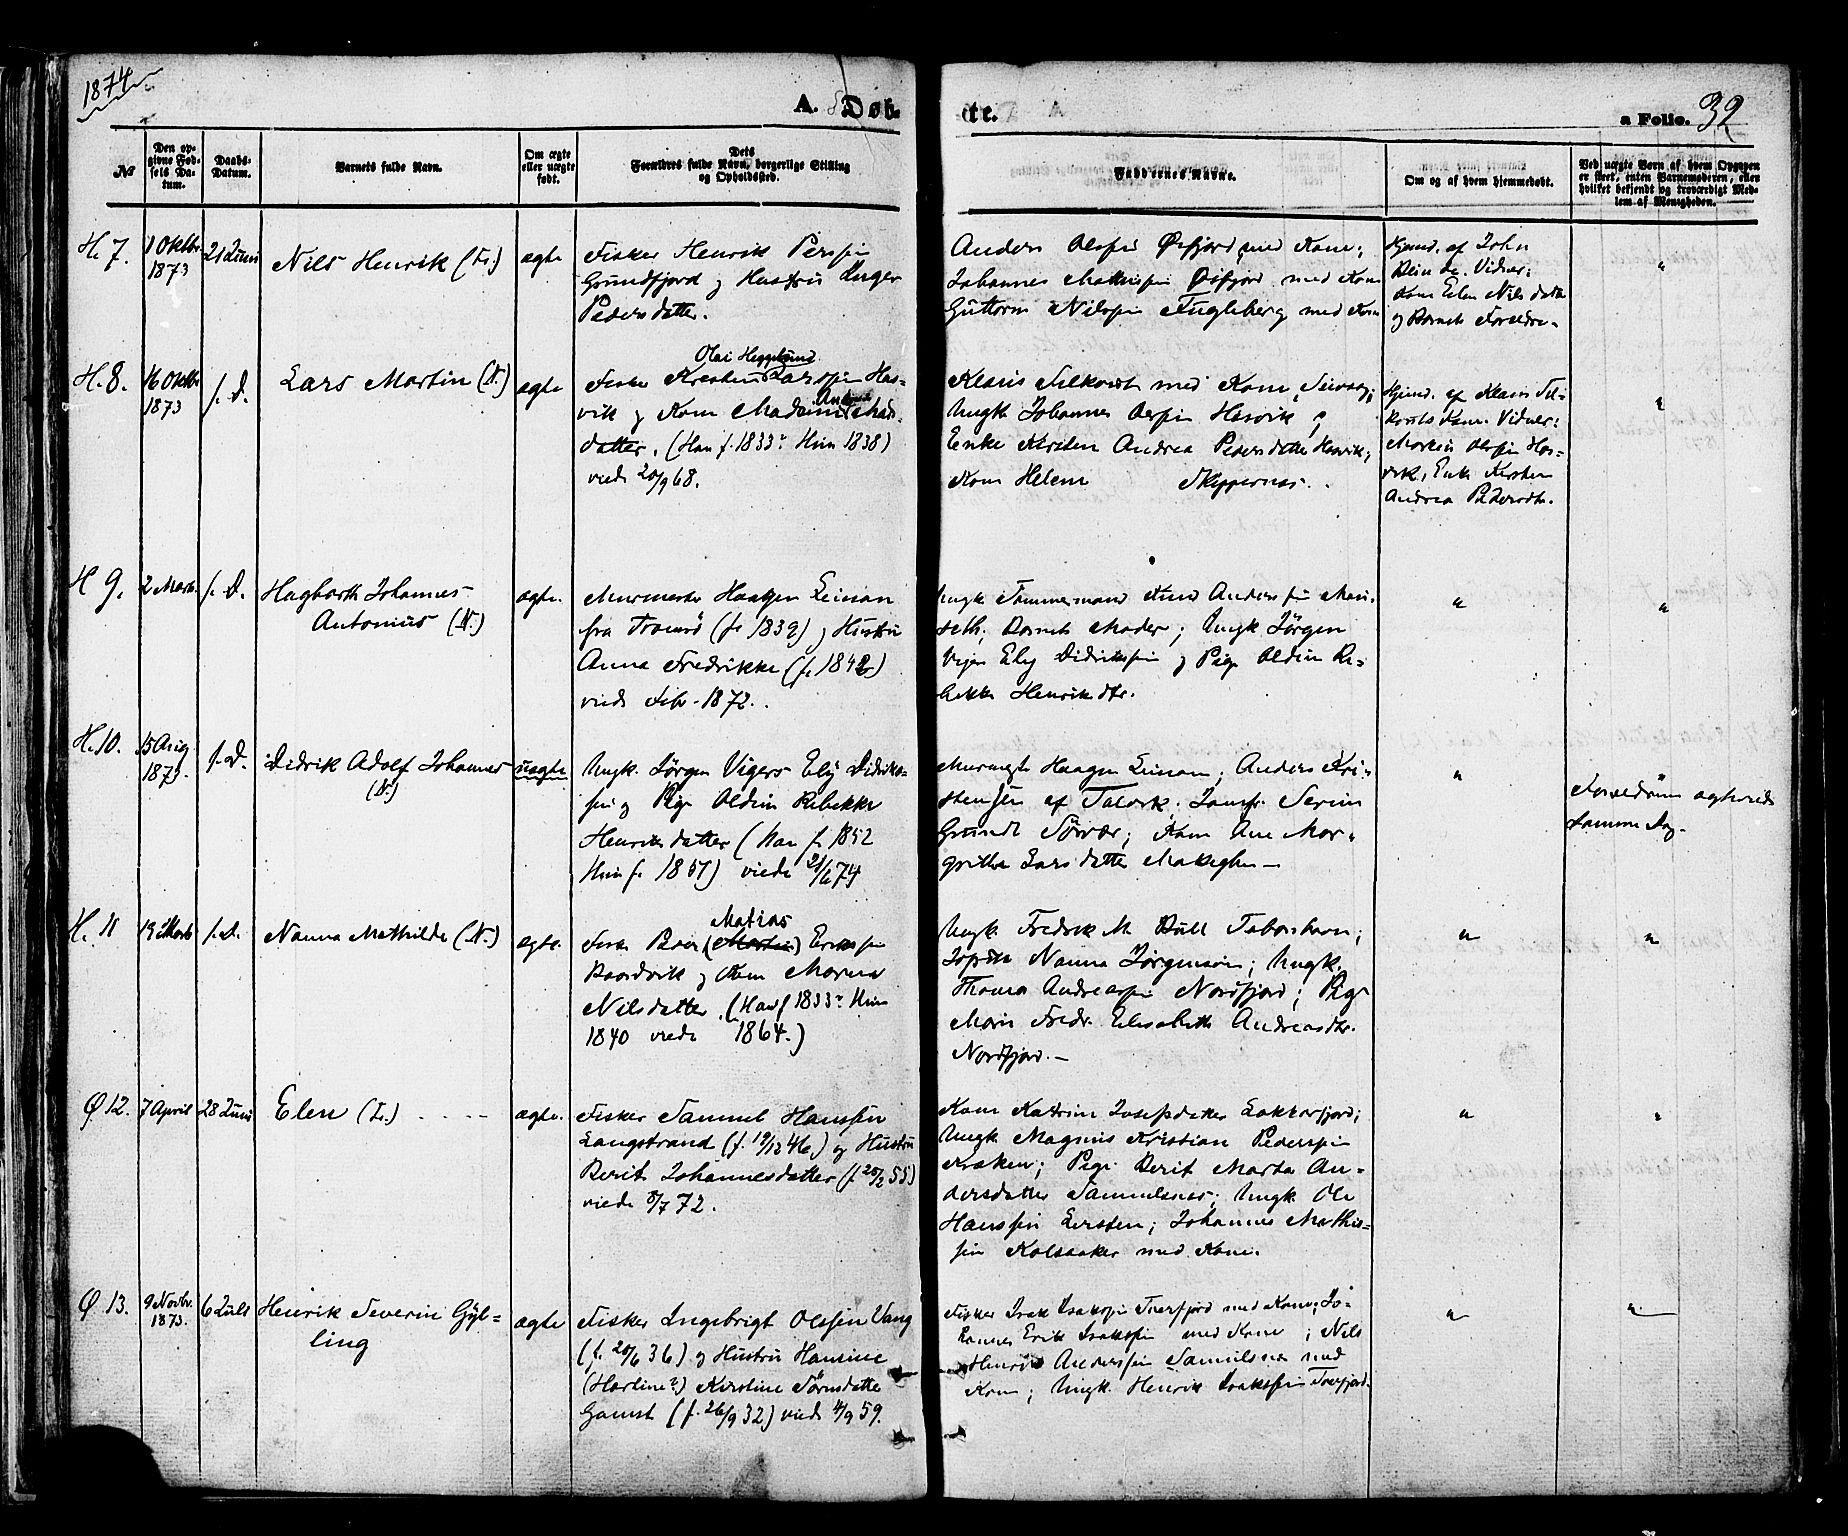 1874
A. Døb-
te.
a Folio. 32
№
Den op-
givne Fød-
sels Da-
tum.
Daabs-
Datum.
Barnets fulde Navn.
Om ægte
eller uægte
født.
Dets
Forældres fulde Navn, borgerlige Stilling
og Opholdssted.
Faddernes Navne.
Om og af hvem hjemmedøbt.
Ved uægte Børn af hvem Opgaven
er skeet, enten Barnemoderen, eller
hvilket bekjendt og troværdigt Med-
lem af Menigheden.
H. 7.
1 Oktbr
1873
21 Juni
Nils Henrik (L.)
ægte
Fisker Henrik Perssen
Grundfjord og Hustru Inger
Pedersdatter.
Anders Olsen Øsfjord med Kone;
Johannes Mathisen Øsfjord med Kone
Guttorm Nilssen Fugleberg med Kone
Hjemd. af John
Vidner:
Kone Elen Nilsdatter
og Barnets Forældre
"
H. 8.
16 Oktbr
1873
s. D.
Lars Martin (N.)
ægte
Olai Heggelund
Fisker Kresten Larssen Has-
vik og Kone
datter. (Han f. 1833 Hun 1838)
viede 20/9 68.
Klaus med Kone,
Ungk Johannes Olsen Hasvik;
Enke Kirsten Andrea Pedersdatter Hasvik;
Kone Helene
Hjemd. af Klaus
Kone. Vidner:
Morten Olsen Has-
vik, Enke Kirsten
Andrea Pedersdtr.
"
H 9.
2 Marts
s. D.
Hagbarth Johannes
Antonius (N.)
ægte.
Murmester Haagen Leinan
fra Tromsø (f. 1839) og Hustru
Anna Fredrikke (f. 1842)
viede Febr. 1872.
Ungk Tømmermand Knud Anderssen
Barnets Moder; Ungk Jørgen
Ely Didrikssen og Pige Oldine Re-
bekka Henriksdtr.
"
"
H. 10.
15 Aug
1873.
s. D.
Didrik Adolf Johannes
(N.)
uægte
Ungk. Jørgen Vigers Ely Didriks-
sen og Pige Oldine Rebekka
Henriksdatter (han f. 1852
Hun f. 1851) viede 21/6 74
Haagen Leinan; Anders Kri-
stensen af Talvik; Jomfr. Serine
Grundt Sørvær; Kone Ane Mar-
grithe Larsdatter
"
Forældrene ægteviede
samme Dag.
H. 11
19 Marts
s. D.
Nanna Mathilde (N.)
ægte.
Matias
Peder (Martin) Erikssen
Baardvik og Kone Maren
Nilsdatter. (Han f 1833 Hun
1840 viede 1864.)
Ungk. Fredrik M Bull
Nanna Jørgensen; Ungk.
Thomas Andreassen Nordfjord; Pige
Maria Fredr. Elisabeth Andreasdtr.
Nordfjord.
"
"
Ø 12.
7 April
28 Juni
Elen (L.)
ægte.
Fisker Samuel Hanssen
Langstrand (f. 19/12 46) og Hustru
Berit Johannesdatter (f 20/2 55)
viede 8/7 72.
Kone Katrine Josefsdatter Lakkarfjord;
Ungk Magnus Kristian Pederssen
Kraken; Pige Berit Marta An-
dersdatter Samuelsnes; Ungk Ole
Hanssen Lersten; Johannes Mathis-
sen Kolsaker med Kone.
"
"
Ø. 13.
9 Novbr.
1873.
6 Juli
Henrik Severin Gyl-
ling
ægte
Fisker Ingebrigt Olssen Vang
(f. 20/6 36) og Hustru Hansine
(Hartine?) Kirstine Sørnsdatter
Gamst (f. 26/9 32) viede 4/9 59.
Fisker Isak Isakssen Tverfjord med Kone; Jo-
hannes Erik Isakssen med Kone; Nils
Henrik Anderssen Samuelsnes med
Kone; Ungk. Henrik Isakssen Tverfjord.
"
"